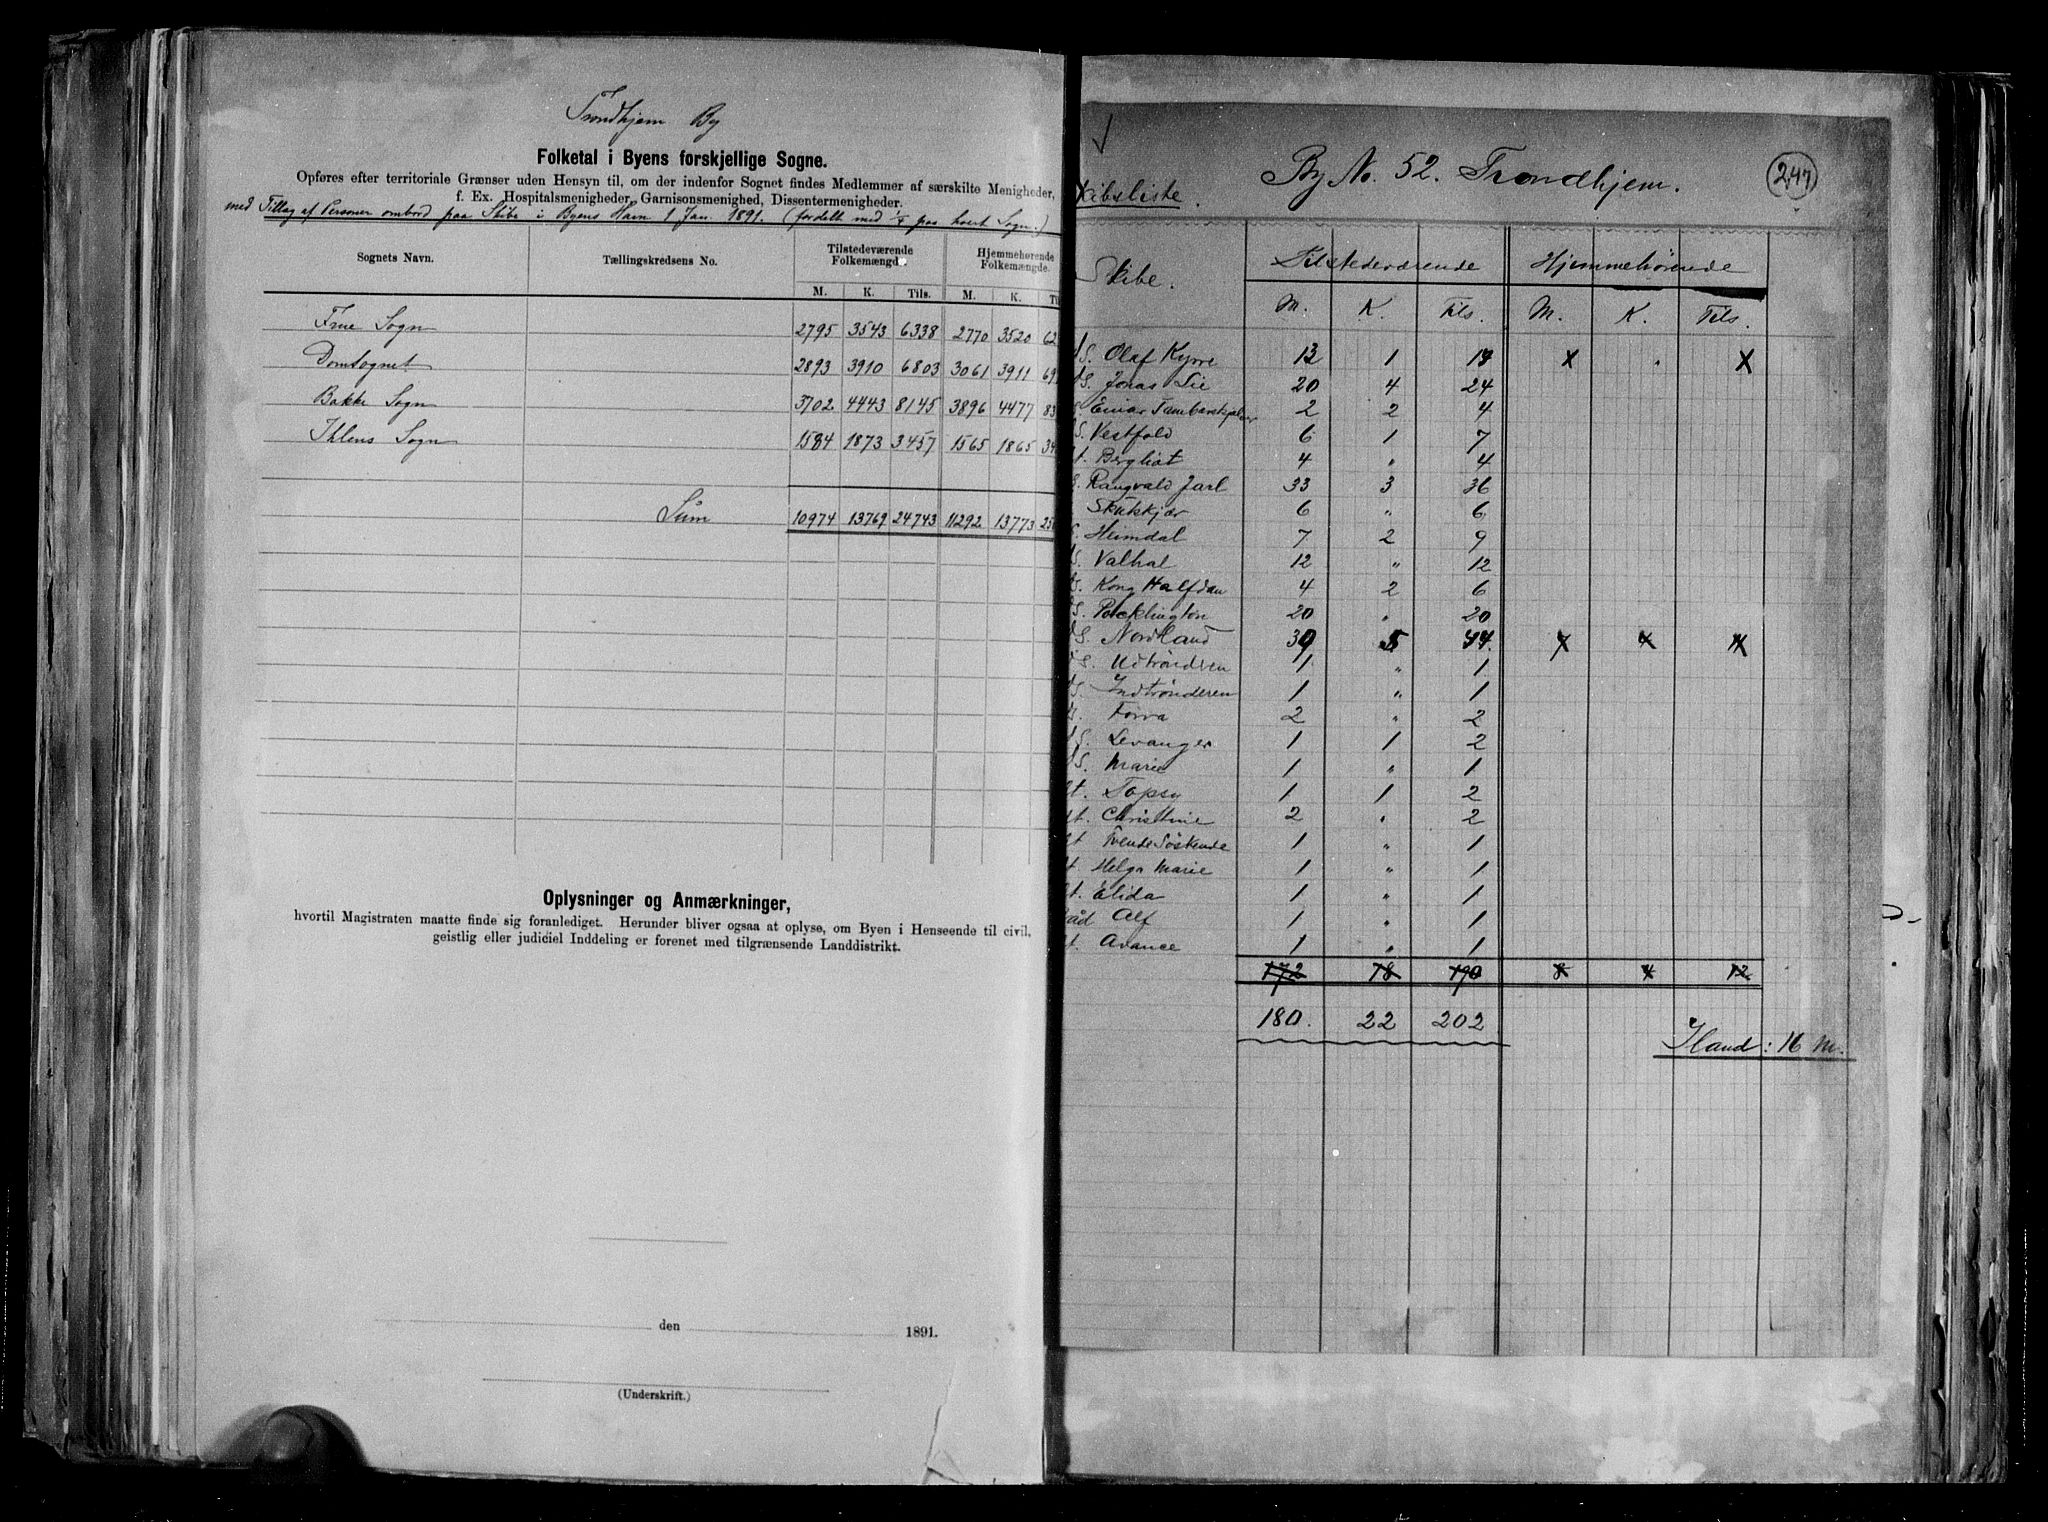 Trondhjem By
Folketal i Byens forskjellige Sogne.
Opføres efter territoriale Grænser uden Hensyn til, om der indenfor Sognet findes Medlemmer af særskilte Menigheder,
f. Ex. Hospitalsmenigheder, Garnisonsmenighed, Dissentermenigheder.
med Tillæg af Personer ombord paa Skibe i Byens Havn 1 Jan. 1891. (fordelt med 1/4 paa hvert Sogn.)
Sognets Navn. Tællingskredsens No. Tilstedeværende Folkemængde. Hjemmehørende Folkemængde.
M. K. Tils. M. K.
Frue Sogn 2795 3543 6338 2770 3520 62
Domsognet 2893 3910 6803 3061 3911 69
Bakke Sogn 3702 4443 8145 3896 4477 83
Ihlens Sogn 1584 1873 3457 1565 1865 34
Sum 10974 13769 24743 11292 13773 250
Oplysninger og Anmærkninger,
hvortil Magistraten maatte finde sig foranlediget. Herunder bliver ogsaa at oplyse, om Byen i Henseende til civil,
geistlig eller judiciel Inddeling er forenet med tilgrænsende Landdistrikt.
den 1891.
(Underskrift.)
By No. 52. Trondhjem. 247
kibsliste.
Skibe. Tilstedeværende Hjemmehørende
M. K. Tils. M. K. Tils.
S. Olaf Kyrre 1
S. Jonas Lie 20 4 24
S. Einar Tambarskjelver 2 2 4
S. Vestfold 6 1 7
t. Bergliot 4 " 4
S. Rangvald Jarl 33 3 36
Skutskjær 6 " 6
S. Heimdal 7 2 9
S. Valhal 12 " 12
S. Kong Halfdan 4 2 6
S. Pocklington 20 " 20
S. Nordland
S. Udtrønderen 1 " 1
S. Indtrønderen 1 " 1
S. Forra 2 " 2
S. Levanger 1 1 2
S. Marie 1 " 1
t. Topsy 1 1 2
t. Christine 2 " 2
t. Trende Søskende 1 " 1
t. Helga Marie 1 " 1
t. Elida 1 " 1
Alf 1 " 1
t. Avance 1 " 1
172 18 190 8 4 12
180. 22 202
Iland: 16 M.